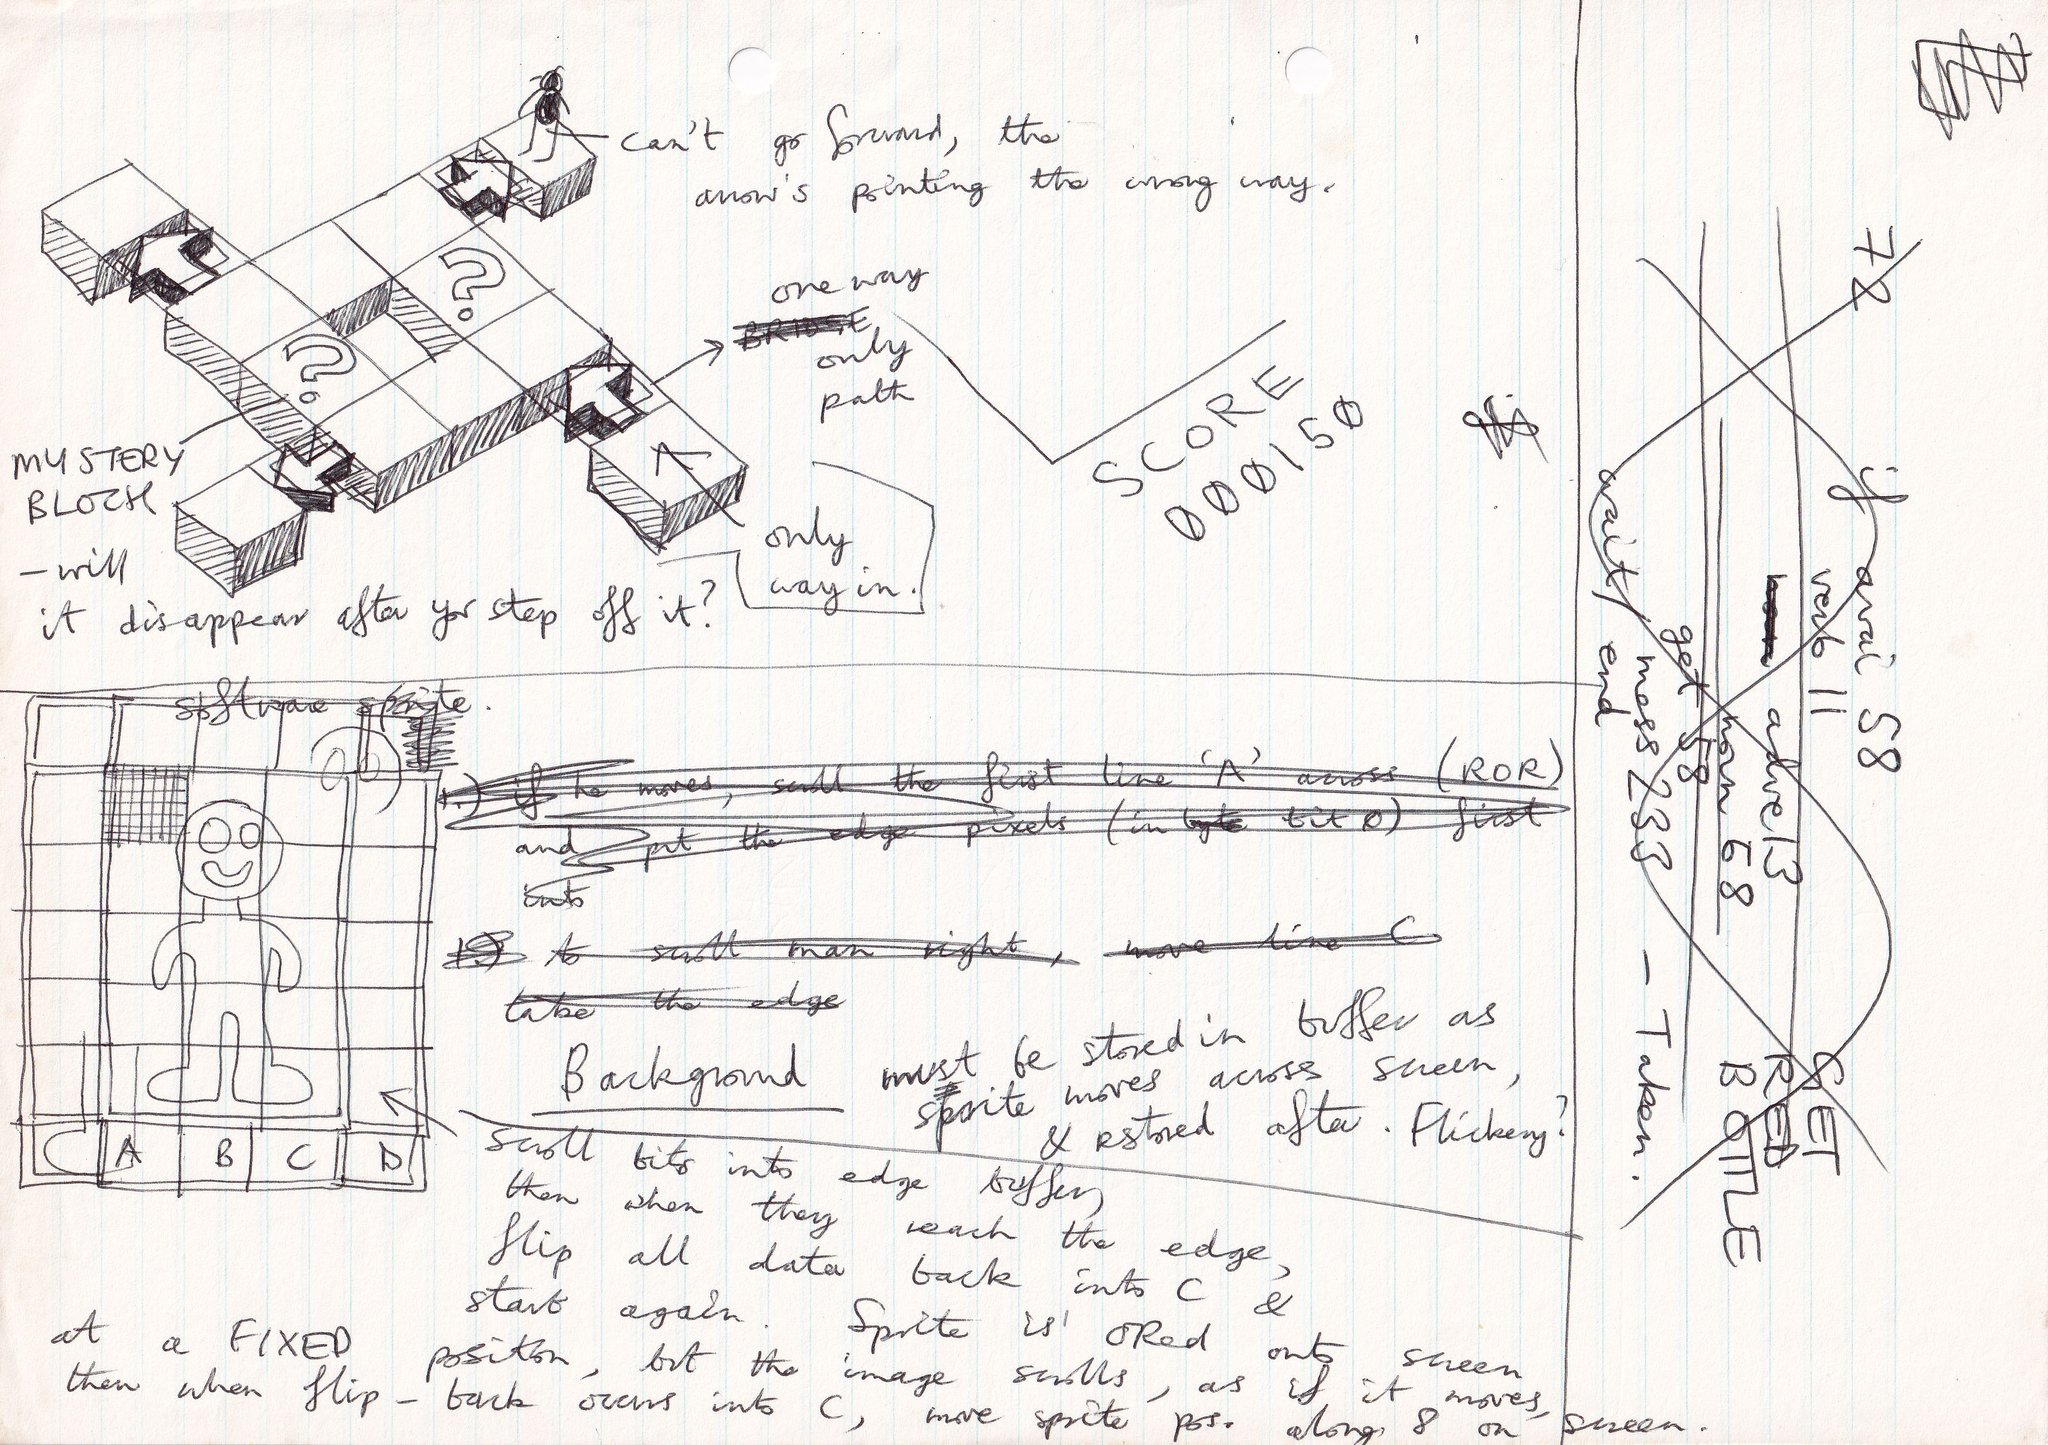 can't go forward, the
arrow's pointing the wrong way.
one way
BRIDGE
only
path
SCORE
000150
MYSTERY
BLOCK
- will
it disappear after you step off it?
only
way in.
software sprite.
1.) if he moves, scroll the first line 'A' across (ROR)
and put the edge pixels (in byte bit 0) first
into
1.) to scroll man right, move line C
take the edge
Background must be stored in buffer as
sprite moves across screen,
& restored after. Flickery?
C A B C D
scroll bits into edge buffer,
then when they reach the edge,
flip all data back into C &
start again. Sprite is ORed onto screen
at a FIXED position, but the image scrolls, as if it moves,
then when flip-back occurs into C, move sprite pos. along 8 on screen.
72
if avail 58
verb 11
adve 13
noun 68
get 58
mess 233
wait, end
GET
RED
BOTTLE
- Taken.